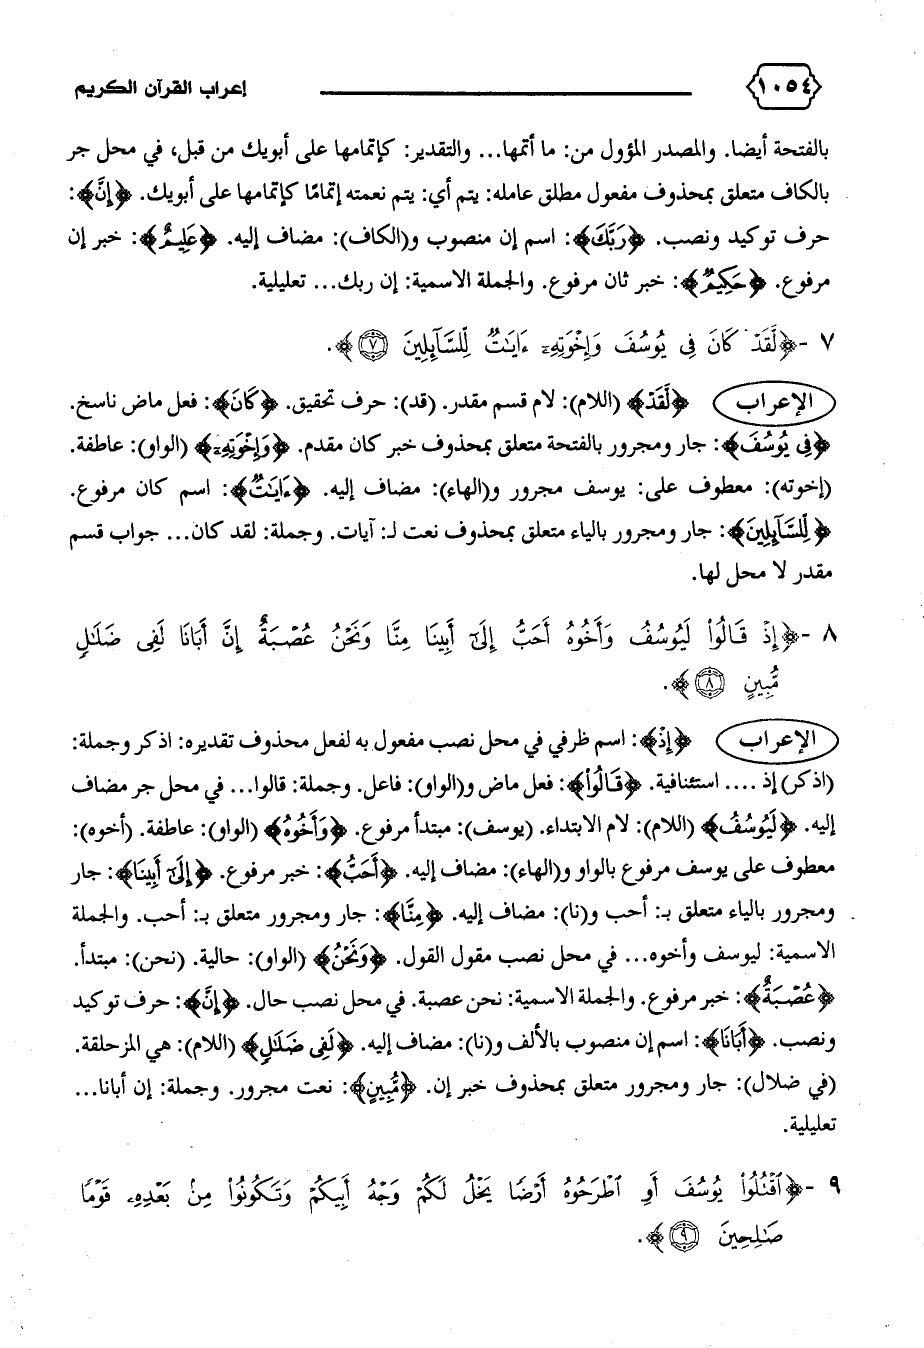 ١٠٥٤ إعراب القرآن الكريم
بالفتحة أيضا. والمصدر المؤول من: ما أتمها... والتقدير: كإتمامها على أبويك من قبل، في محل جر
بالكاف متعلق بمحذوف مفعول مطلق عامله: يتم أي: يتم نعمته إتمامًا كإتمامها على أبويك. ﴿إِنَّ﴾:
حرف توكيد ونصب. ﴿رَبَّكَ﴾: اسم إن منصوب و(الكاف): مضاف إليه. ﴿عَلِيمٌ﴾: خبر إن
مرفوع. ﴿حَكِيمٌ﴾: خبر ثان مرفوع. والجملة الاسمية: إن ربك... تعليلية.
٧ -﴿لَّقَدْ كَانَ فِي يُوسُفَ وَإِخْوَتِهِۦٓ ءَايَٰتٌ لِّلسَّآئِلِينَ ٧﴾.
الإعراب ﴿لَّقَدْ﴾ (اللام): لام قسم مقدر. (قد): حرف تحقيق. ﴿كَانَ﴾: فعل ماض ناسخ.
﴿فِي يُوسُفَ﴾: جار ومجرور بالفتحة متعلق بمحذوف خبر كان مقدم. ﴿وَإِخْوَتِهِۦٓ﴾ (الواو): عاطفة.
(إخوته): معطوف على: يوسف مجرور و(الهاء): مضاف إليه. ﴿ءَايَٰتٌ﴾: اسم كان مرفوع.
﴿لِّلسَّآئِلِينَ﴾: جار ومجرور بالياء متعلق بمحذوف نعت لـ: آيات. وجملة: لقد كان... جواب قسم
مقدر لا محل لها.
٨ -﴿إِذْ قَالُوا۟ لَيُوسُفُ وَأَخُوهُ أَحَبُّ إِلَىٰٓ أَبِينَا مِنَّا وَنَحْنُ عُصْبَةٌ إِنَّ أَبَانَا لَفِي ضَلَٰلٍ
مُّبِينٍ ٨﴾.
الإعراب ﴿إِذْ﴾: اسم ظرفي في محل نصب مفعول به لفعل محذوف تقديره: اذكر وجملة:
(اذكر) إذ .... استئنافية. ﴿قَالُوا۟﴾: فعل ماض و(الواو): فاعل. وجملة: قالوا... في محل جر مضاف
إليه. ﴿لَيُوسُفُ﴾ (اللام): لام الابتداء. (يوسف): مبتدأ مرفوع. ﴿وَأَخُوهُ﴾ (الواو): عاطفة. (أخوه):
معطوف على يوسف مرفوع بالواو و(الهاء): مضاف إليه. ﴿أَحَبُّ﴾: خبر مرفوع. ﴿إِلَىٰٓ أَبِينَا﴾: جار
ومجرور بالياء متعلق بـ: أحب و(نا): مضاف إليه. ﴿مِنَّا﴾: جار ومجرور متعلق بـ: أحب. والجملة
الاسمية: ليوسف وأخوه... في محل نصب مقول القول. ﴿وَنَحْنُ﴾ (الواو): حالية. (نحن): مبتدأ.
﴿عُصْبَةٌ﴾: خبر مرفوع. والجملة الاسمية: نحن عصبة. في محل نصب حال. ﴿إِنَّ﴾: حرف توكيد
ونصب. ﴿أَبَانَا﴾: اسم إن منصوب بالألف و(نا): مضاف إليه. ﴿لَفِي ضَلَٰلٍ﴾ (اللام): هي المزحلقة.
(في ضلال): جار ومجرور متعلق بمحذوف خبر إن. ﴿مُّبِينٍ﴾: نعت مجرور. وجملة: إن أبانا...
تعليلية.
٩ -﴿ٱقْتُلُوا۟ يُوسُفَ أَوِ ٱطْرَحُوهُ أَرْضًا يَخْلُ لَكُمْ وَجْهُ أَبِيكُمْ وَتَكُونُوا۟ مِنۢ بَعْدِهِۦ قَوْمًا
صَٰلِحِينَ ٩﴾.